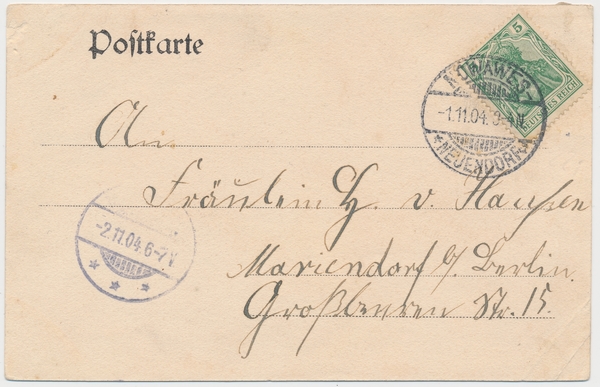 Postkarte
5
DEUTSCHES REICH
NOWAWES
-1.11.04. 3-4 N.
* NEUENDORF *
An
Fräulein H. v. Hausen
Mariendorf b/ Berlin.
Großbeeren Str. 15.
-2.11.04. 6-7 V.
* * *